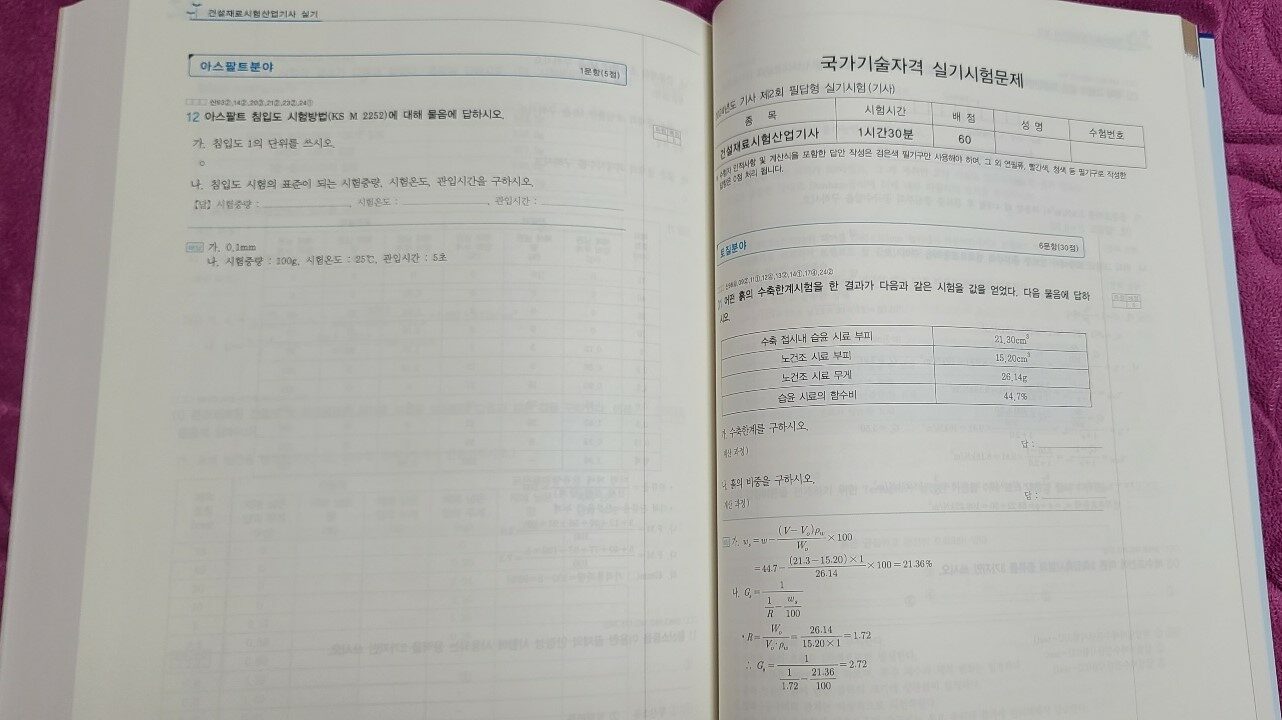 건설재료시험산업기사 실기
아스팔트분야
1문항(5점)
산93②,14②,20②,21②,23②,24①
12 아스팔트 침입도 시험방법(KS M 2252)에 대해 물음에 답하시오.
가. 침입도 1의 단위를 쓰시오.
나. 침입도 시험의 표준이 되는 시험중량, 시험온도, 관입시간을 구하시오.
【답】시험중량 : , 시험온도 : , 관입시간 :
해답 가. 0.1mm
나. 시험중량 : 100g, 시험온도 : 25℃, 관입시간 : 5초
국가기술자격 실기시험문제
2024년도 기사 제2회 필답형 실기시험(기사)
종 목 시험시간 배 점 성 명 수험번호
건설재료시험산업기사 1시간30분 60
수험자 인적사항 및 계산식을 포함한 답안 작성은 검은색 필기구만 사용해야 하며, 그 외 연필류, 빨간색, 청색 등 필기구로 작성한
답항은 0점 처리 됩니다.
토질분야
6문항(30점)
01 어떤 흙의 수축한계시험을 한 결과가 다음과 같은 시험을 값을 얻었다. 다음 물음에 답하
시오.
수축 접시내 습윤 시료 부피 21.30cm³
노건조 시료 부피 15.20cm³
노건조 시료 무게 26.14g
습윤 시료의 함수비 44.7%
가. 수축한계를 구하시오.
계산 과정) 답 :
나. 흙의 비중을 구하시오.
계산 과정) 답 :
가. w_s = w − (V − V_o)ρ_w / W_o × 100
= 44.7 − (21.3 − 15.20) × 1 / 26.14 × 100 = 21.36%
나. G_s = 1 / (1/R − w_s/100)
· R = W_o / (V_o · ρ_w) = 26.14 / (15.20 × 1) = 1.72
∴ G_s = 1 / (1/1.72 − 21.36/100) = 2.72